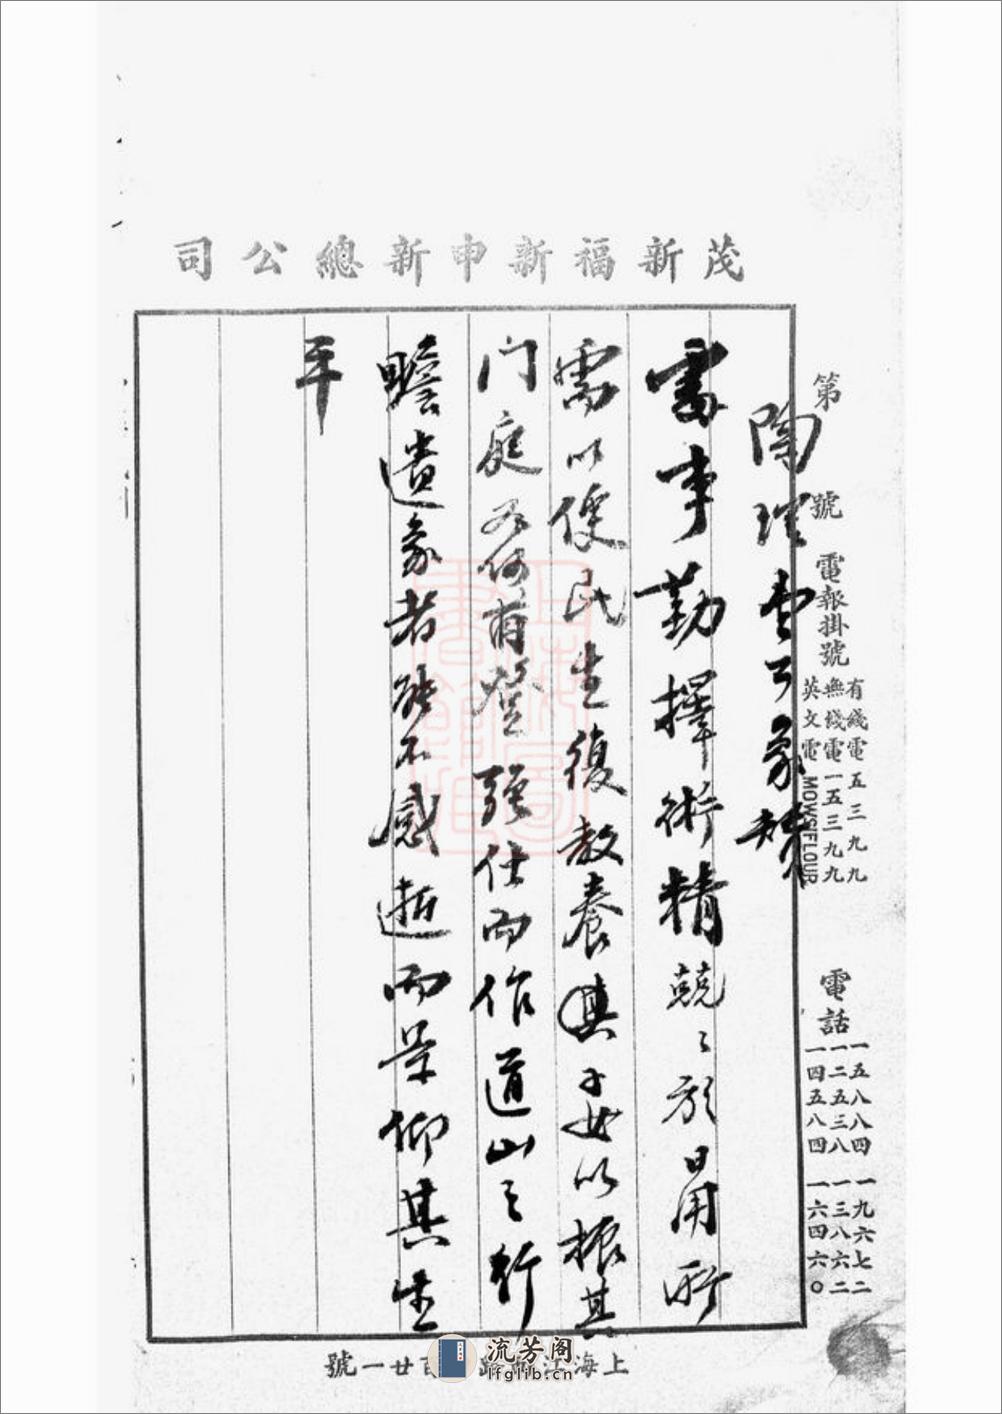 茂新福新申新總公司
第　號　電報掛號
有綫電五三九九
無綫電一五三九九
英文電MOWSIFLOUR
電話
一五八八四　一九六七二
一二五三八　一三八六二
一四五八四　一六四六〇
陶理堂象贊
當事勤擇術精兢〻於日用所
需以便民生復教養其子女以振其
门庭為何甫登强仕而作道山之行
瞻遺象者能不感逝而景仰其生
平
上海江路百廿一號
流芳阁
lfglib.cn